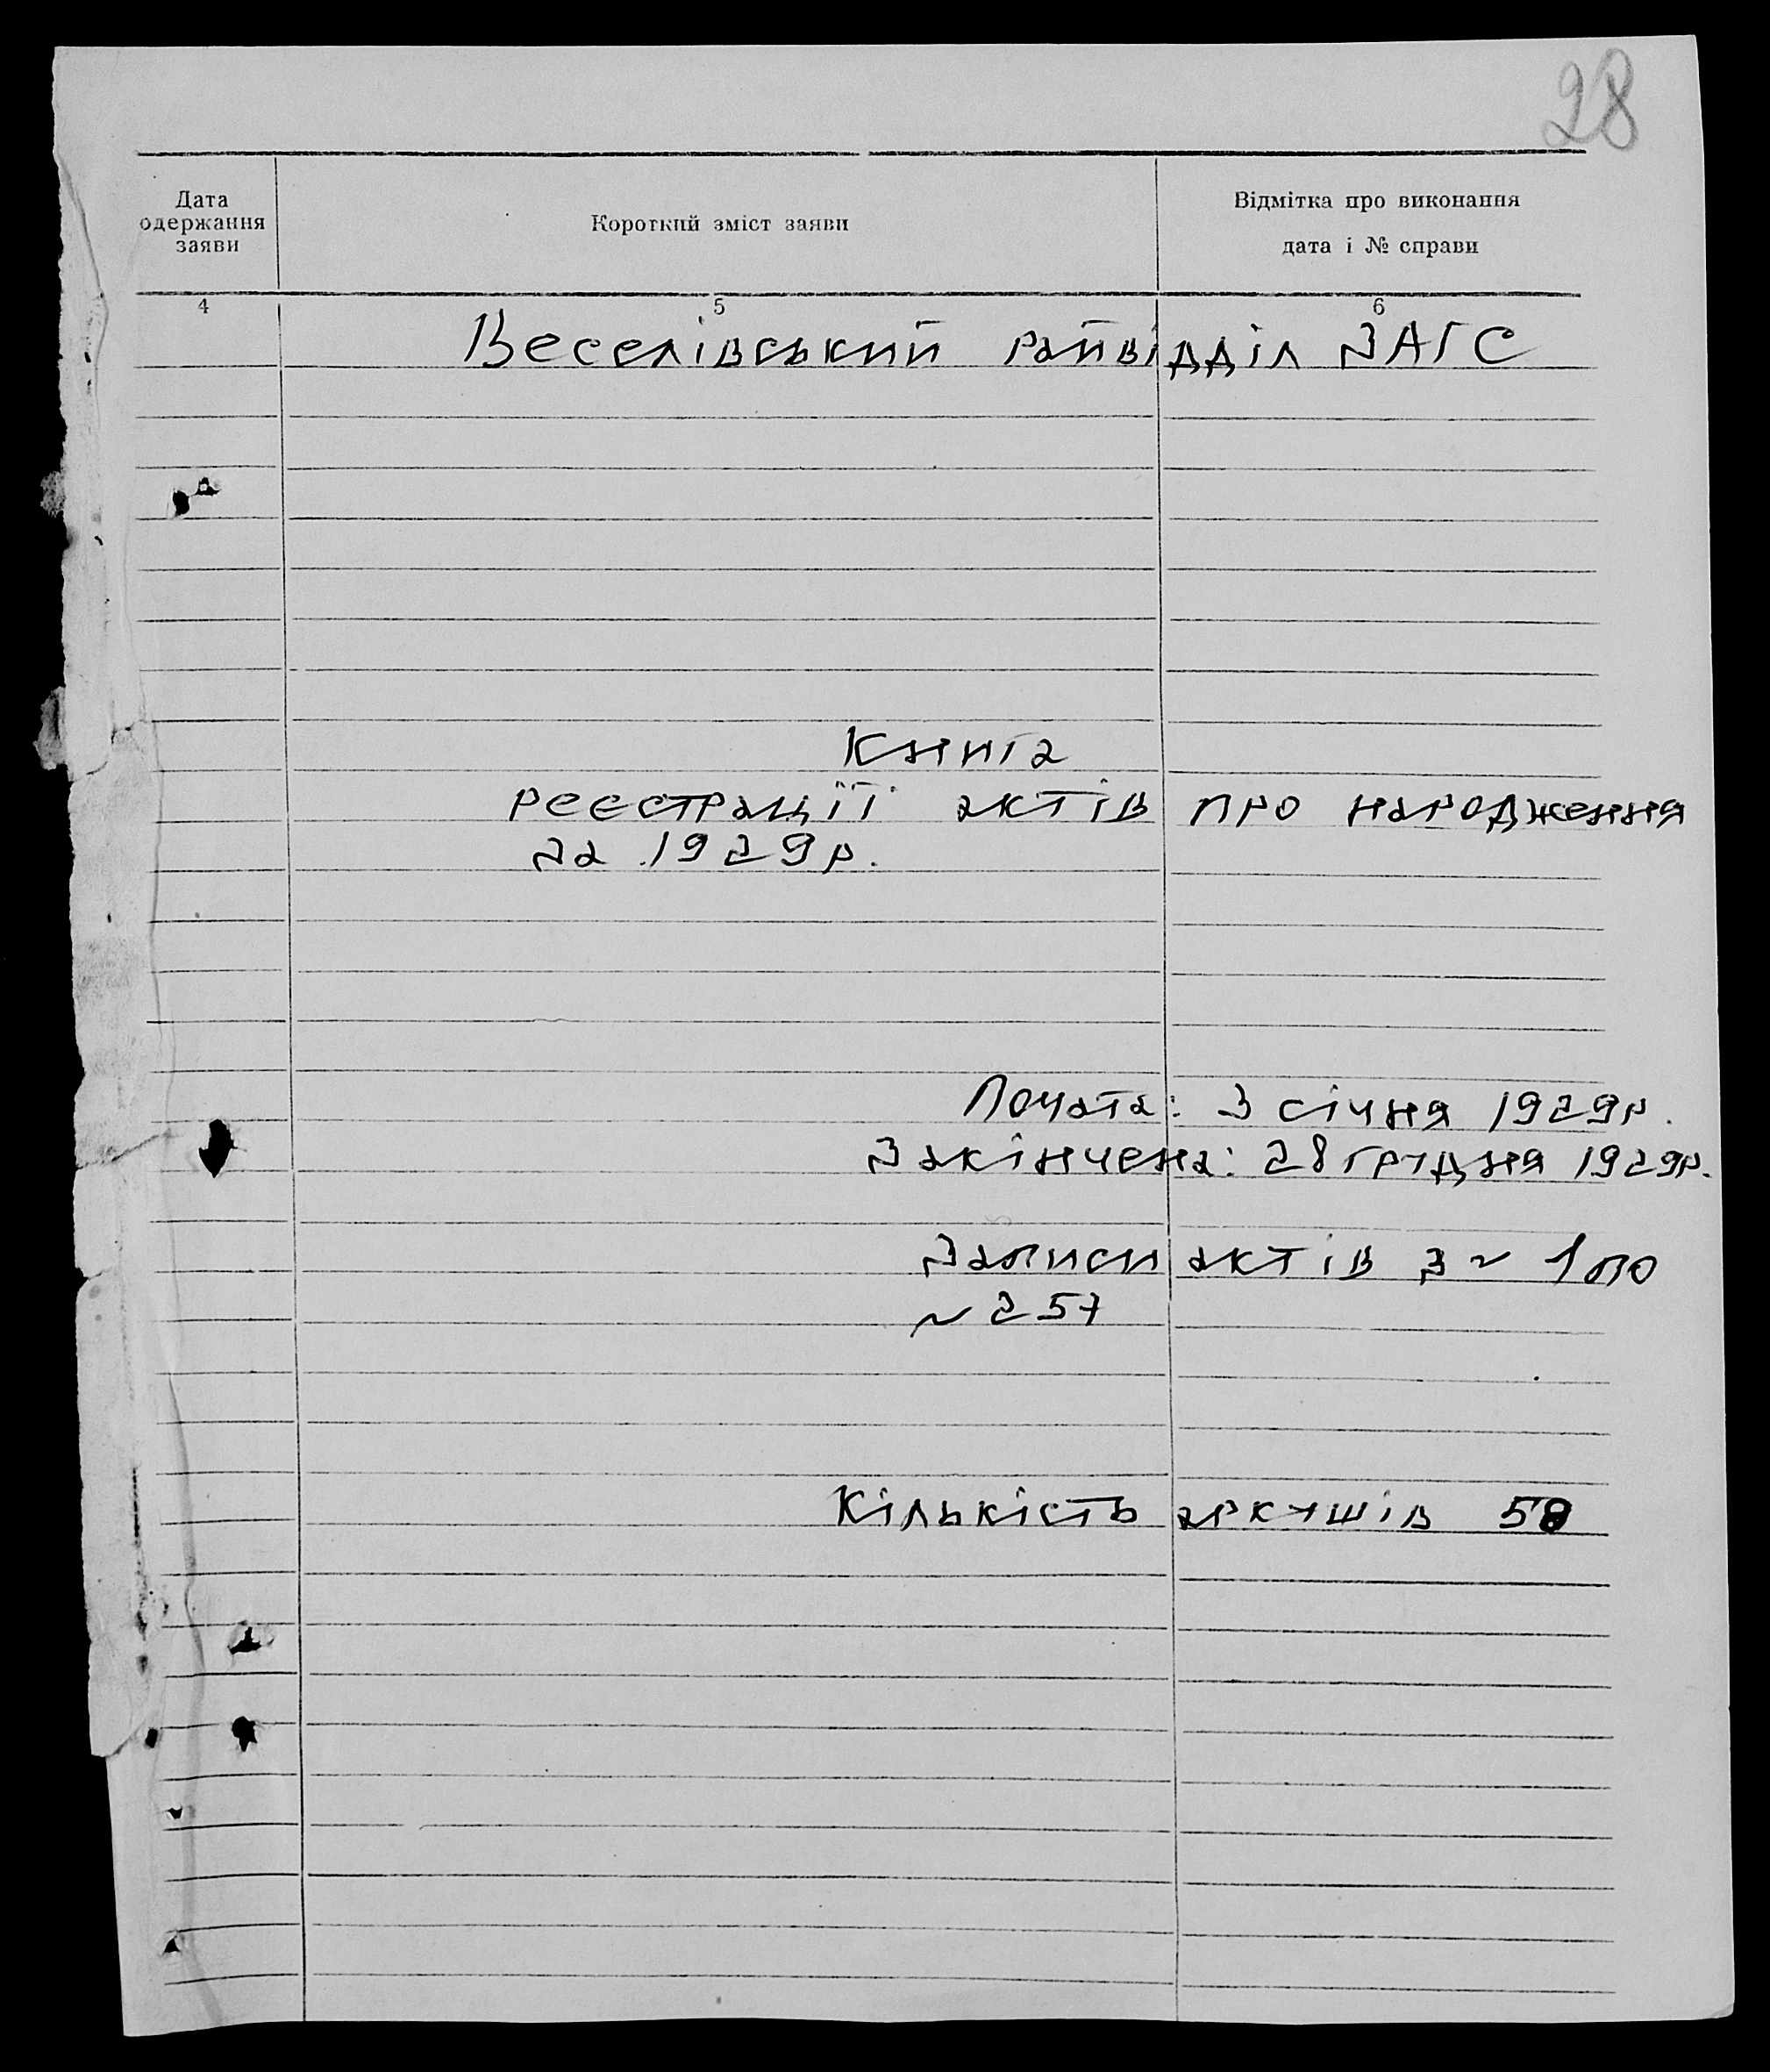 28
Дата
одержання
заяви
Короткий зміст заяви
Відмітка про виконання
дата і № справи
4
5
6
Веселівський райвідділ ЗАГС
Книга
реєстрації актів про народження
за 1929р.
Почата: 3 січня 1929р.
Закінчена: 28 грудня 1929р.
Записи актів з № 1 по
№ 257
Кількість аркушів 58